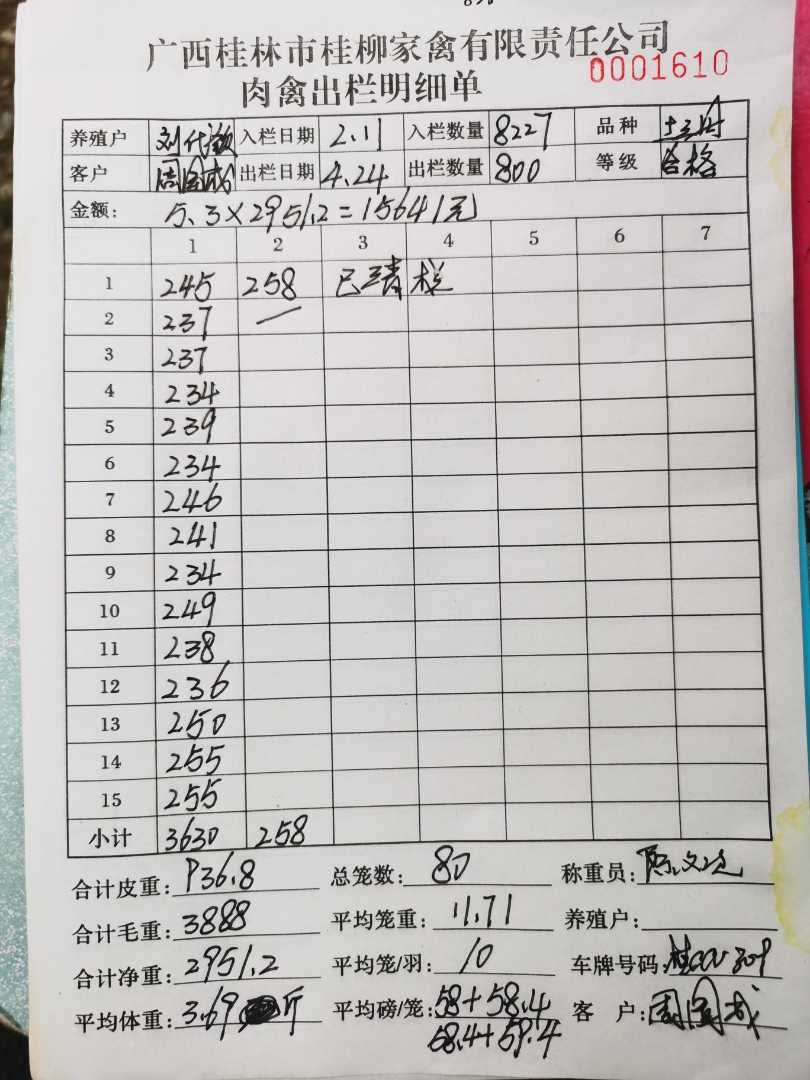 广西桂林市桂柳家禽有限责任公司
0001610
肉禽出栏明细单
养殖户 刘代 入栏日期 2.11 入栏数量 8227 品种 土
客户 周国成 出栏日期 4.24 出栏数量 800 等级 合格
金额: 5.3×2951.2=15641元
1 2 3 4 5 6 7
1 245 258 已清栏
2 237 —
3 237
4 234
5 239
6 234
7 246
8 241
9 234
10 249
11 238
12 236
13 250
14 255
15 255
小计 3630 258
合计皮重: P36.8 总笼数: 80 称重员: 陈文
合计毛重: 3888 平均笼重: 11.71 养殖户:
合计净重: 2951.2 平均笼/羽: 10 车牌号码: 桂
平均体重: 3.69 斤 平均磅/笼: 58+58.4 客户: 周国成
58.4+59.4